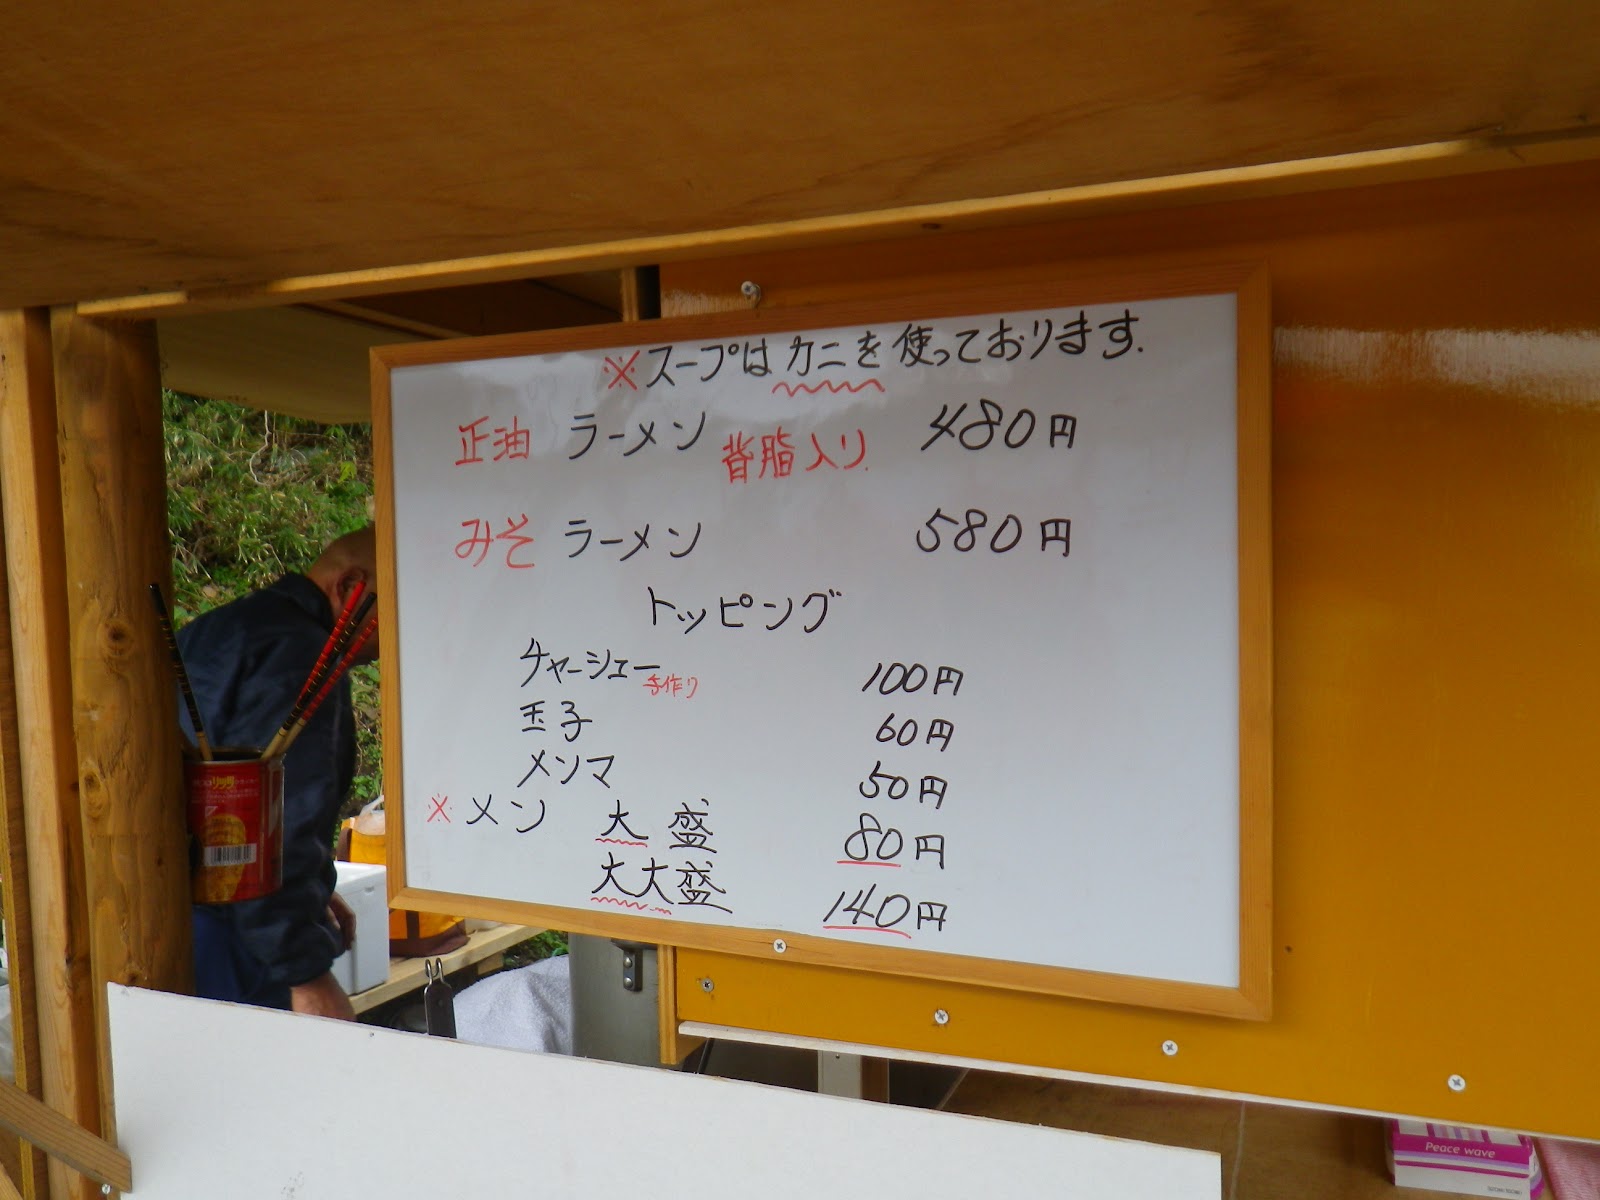 ※スープはカニを使っております.
正油 ラーメン 背脂入り 480円
みそ ラーメン 580円
トッピング
チャーシュー 手作り 100円
玉子 60円
メンマ 50円
※ メン 大 盛 80円
大大盛 140円
リッツ
Peace wave